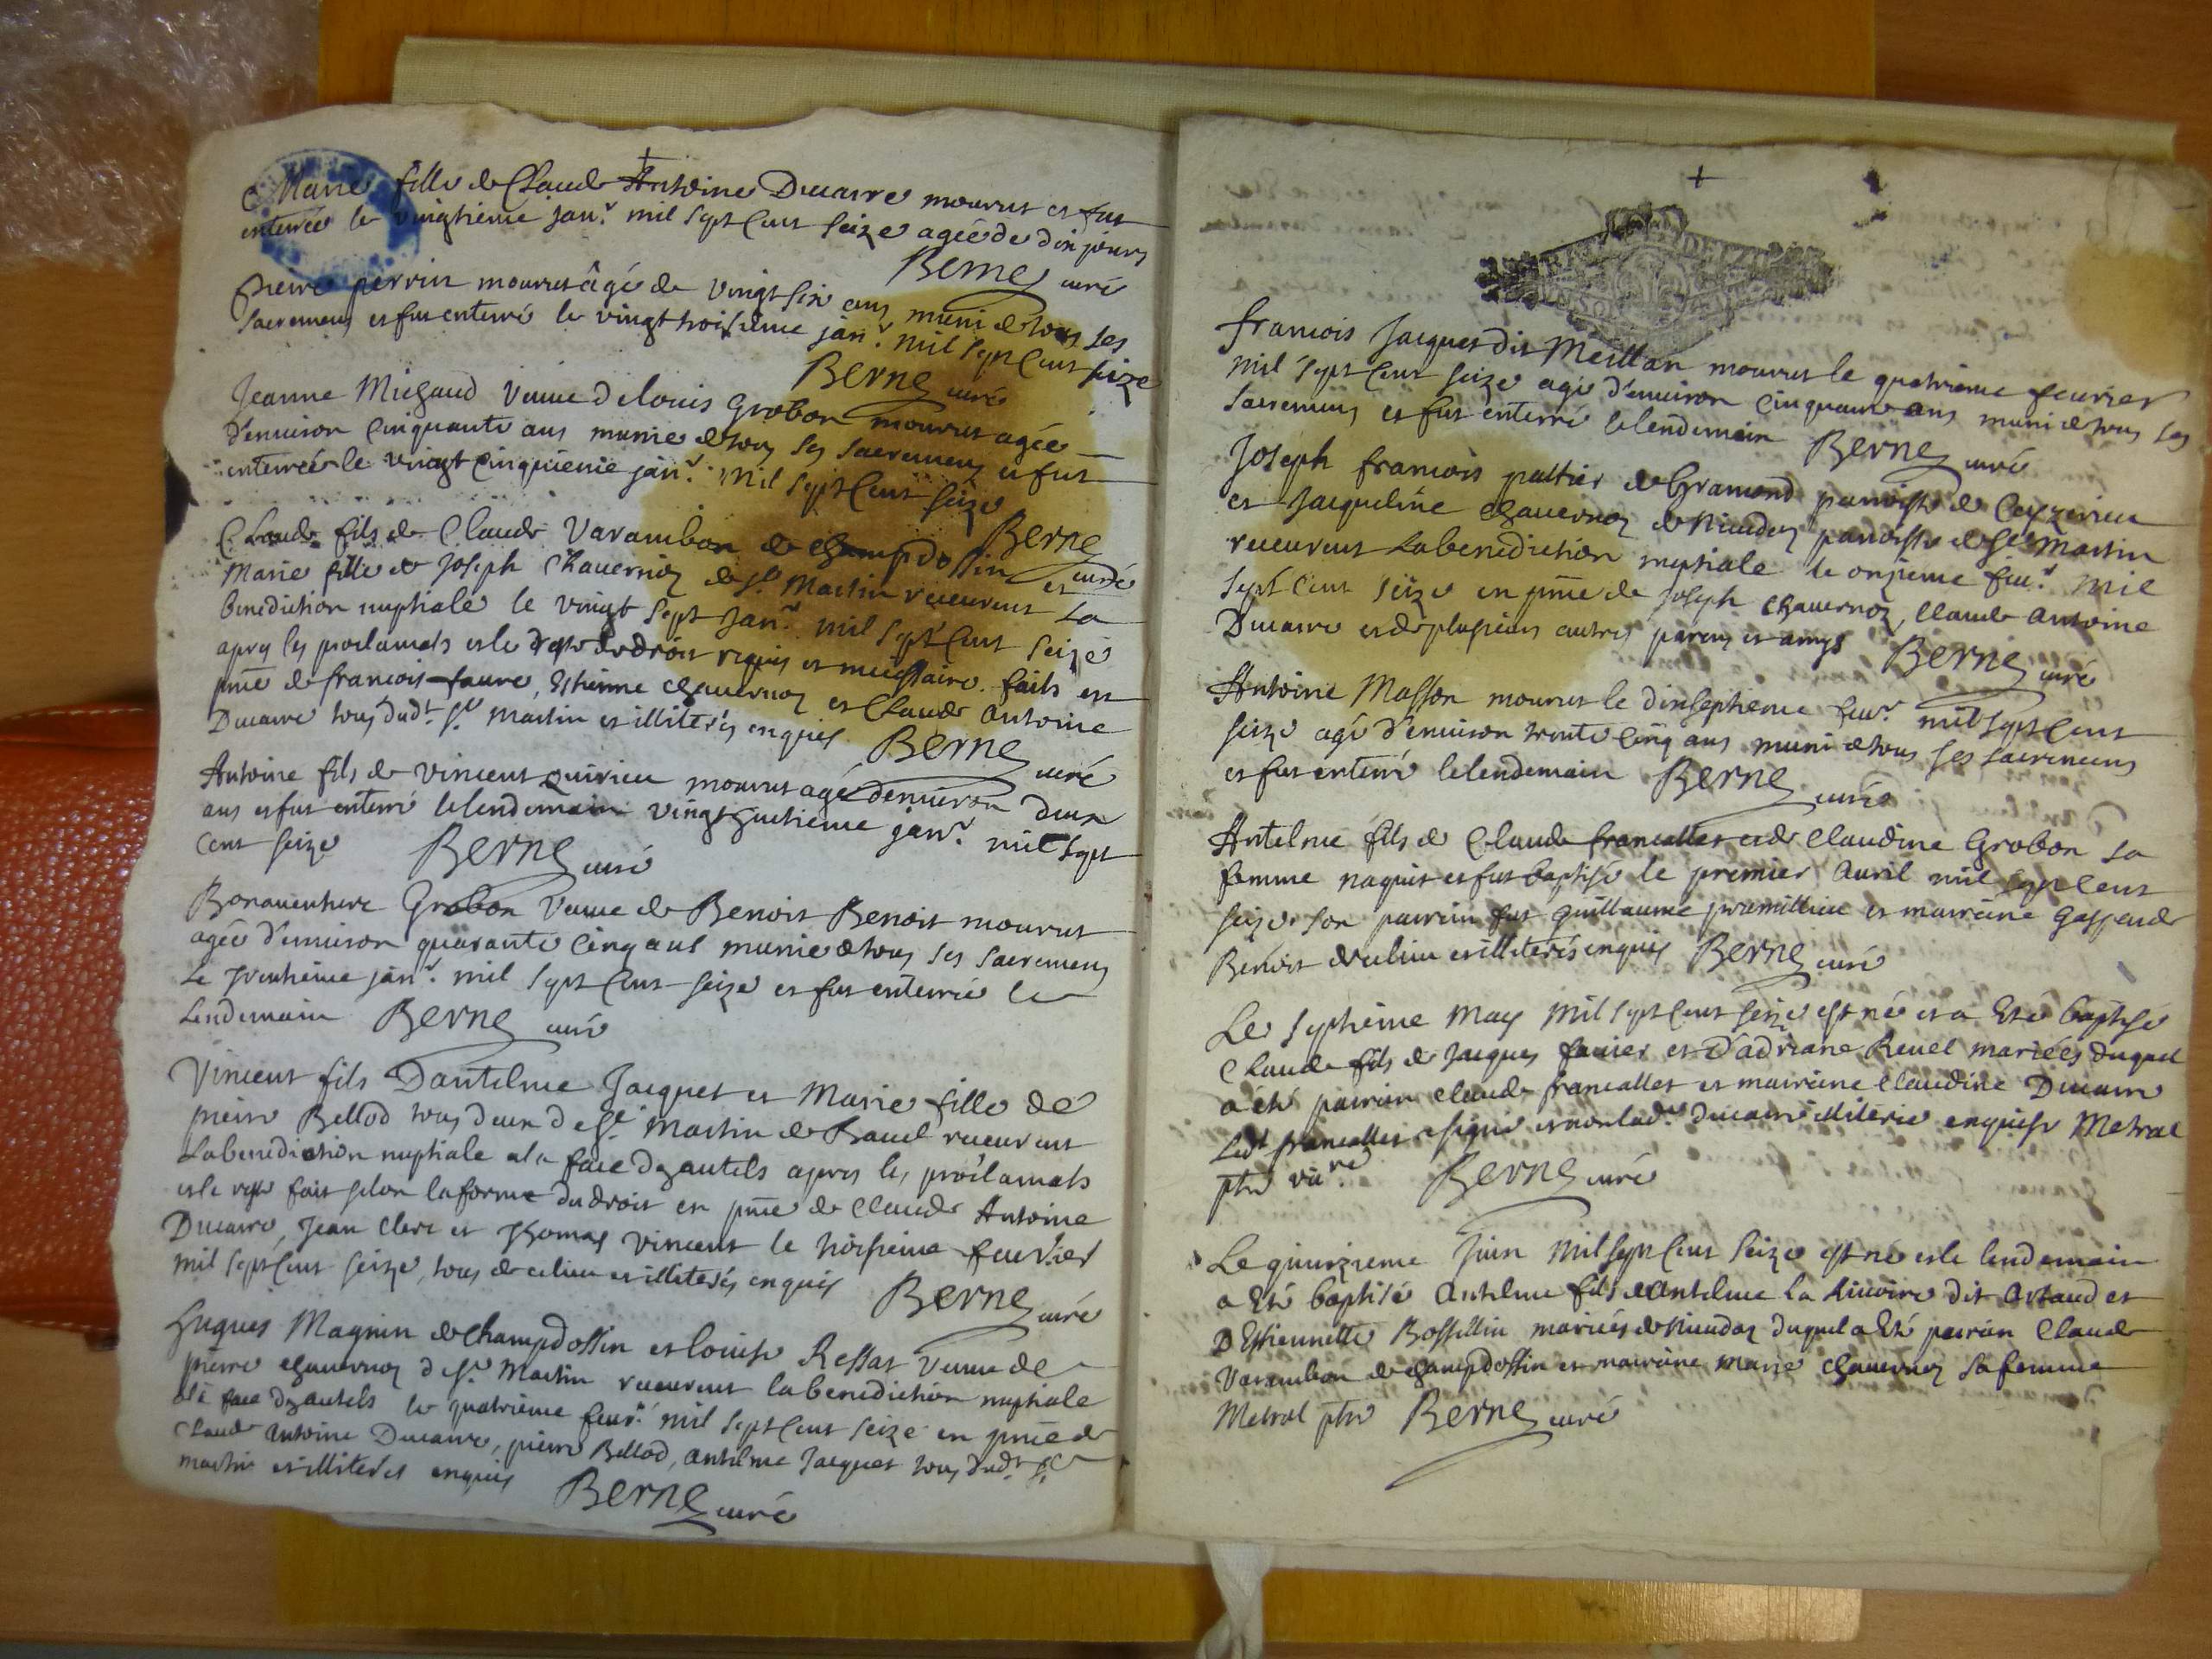 Marie fille de Claude Antoine Ducarre mourut et fut
enterrée le vingtieme janr. mil sept cent seize agée de dix jours
Berne curé
pierre perrin mourut âgé de vingt six ans muni de tous ses
sacremens et fut enterré le vingt troisieme janr. mil sept cent seize
Berne curé
Jeanne Michaud veuve de louis Grobon mourut agée
d'enuiron cinquante ans munie de tous ses sacremens et fut
enterrée le vingt cinquieme janr. mil sept cent seize
Berne curé
Claude fils de Claude Varambon de champdossin et
Marie fille de Joseph Chauernoz de st. Martin receurent la
benediction nuptiale le vingt sept janr. mil sept cent seize
apres les proclamats et le reste de droit requis et necessaire faits en
pnce de francois faure, Estienne chauernoz et Claude Antoine
Ducarre tous dudt. st. Martin et illiterés enquis Berne curé
Antoine fils de vincent quirieu mourut agé d'enuiron deux
ans et fut enterré le lendemain vingt huitieme janr. mil sept
cent seize Berne curé
Bonauenture Grobon veuue de Benoit Benoit mourut
agée d'enuiron quarante cinq ans munie de tous ses sacremens
le trentieme janr. mil sept cent seize et fut enterrée le
lendemain Berne curé
Vincent fils Dantelme Jacquet et Marie fille de
pierre Bellod tous deux de st. Martin de Bauel receurent
la benediction nuptiale a la face des autels apres les proclamats
et le reste fait selon la forme du droit en pnce de Claude Antoine
Ducarre, Jean Clerc et Thomas Vincent le troisieme feurier
mil sept cent seize, tous de ce lieu et illiterés enquis Berne curé
Hugues Magnin de Champdossin et louise Ressat veuue de
pierre chauernoz de st. Martin receurent la benediction nuptiale
a la face des autels le quatrieme feur. mil sept cent seize en pnce de
Claude Antoine Ducarre, pierre Bellod, antelme Jacquet tous dudt. st.
martin et illiterés enquis Berne curé
francois Jacquet dit Meillan mourut le quatrieme feurier
mil sept cent seize agé d'enuiron cinquante ans muni de tous ses
sacremens et fut enterré le lendemain Berne curé
Joseph francois paltier de Gramond parroisse de Ceyzerieu
et Jacqueline chauernoz de Niuudaz parroisse de st. Martin
receurent la benediction nuptiale le onzieme feur. mil
sept cent seize en pnce de Joseph chauernoz, Claude Antoine
Ducarre et de plusieurs autres parens et amys Berne curé
Antoine Masson mourut le dixseptieme feur. mil sept cent
seize agé d'enuiron trente cinq ans muni de tous ses sacremens
et fut enterré le lendemain Berne curé
Antelme fils de Claude francallet et de Claudine Grobon sa
femme naquit et fut baptisé le premier auril mil sept cent
seize. son parrain fut guillaume pramillieu et marraine gasparde
Benoit de ce lieu et illiterés enquis Berne curé
Le septieme May mil sept cent seize est né et a Eté baptisé
Claude fils de Jacques fauier et D'adriane Reuel mariées duquel
a été parrain claude francallet et marraine Claudine Ducarre
Ledt. francallet a signé et non lade. ducarre illiterée enquise Metral
ptre vicre Berne curé
Le quinzieme Juin mil sept cent seize est né et le lendemain
a Eté baptisé antelme fils d'antelme la Riuoire dit Artaud et
D'Estiennette Bossillin mariés de Niuudaz duquel a Eté parrain Claude
Varambon de champdossin et marraine marie chauernoz sa femme
Metral ptre Berne curé